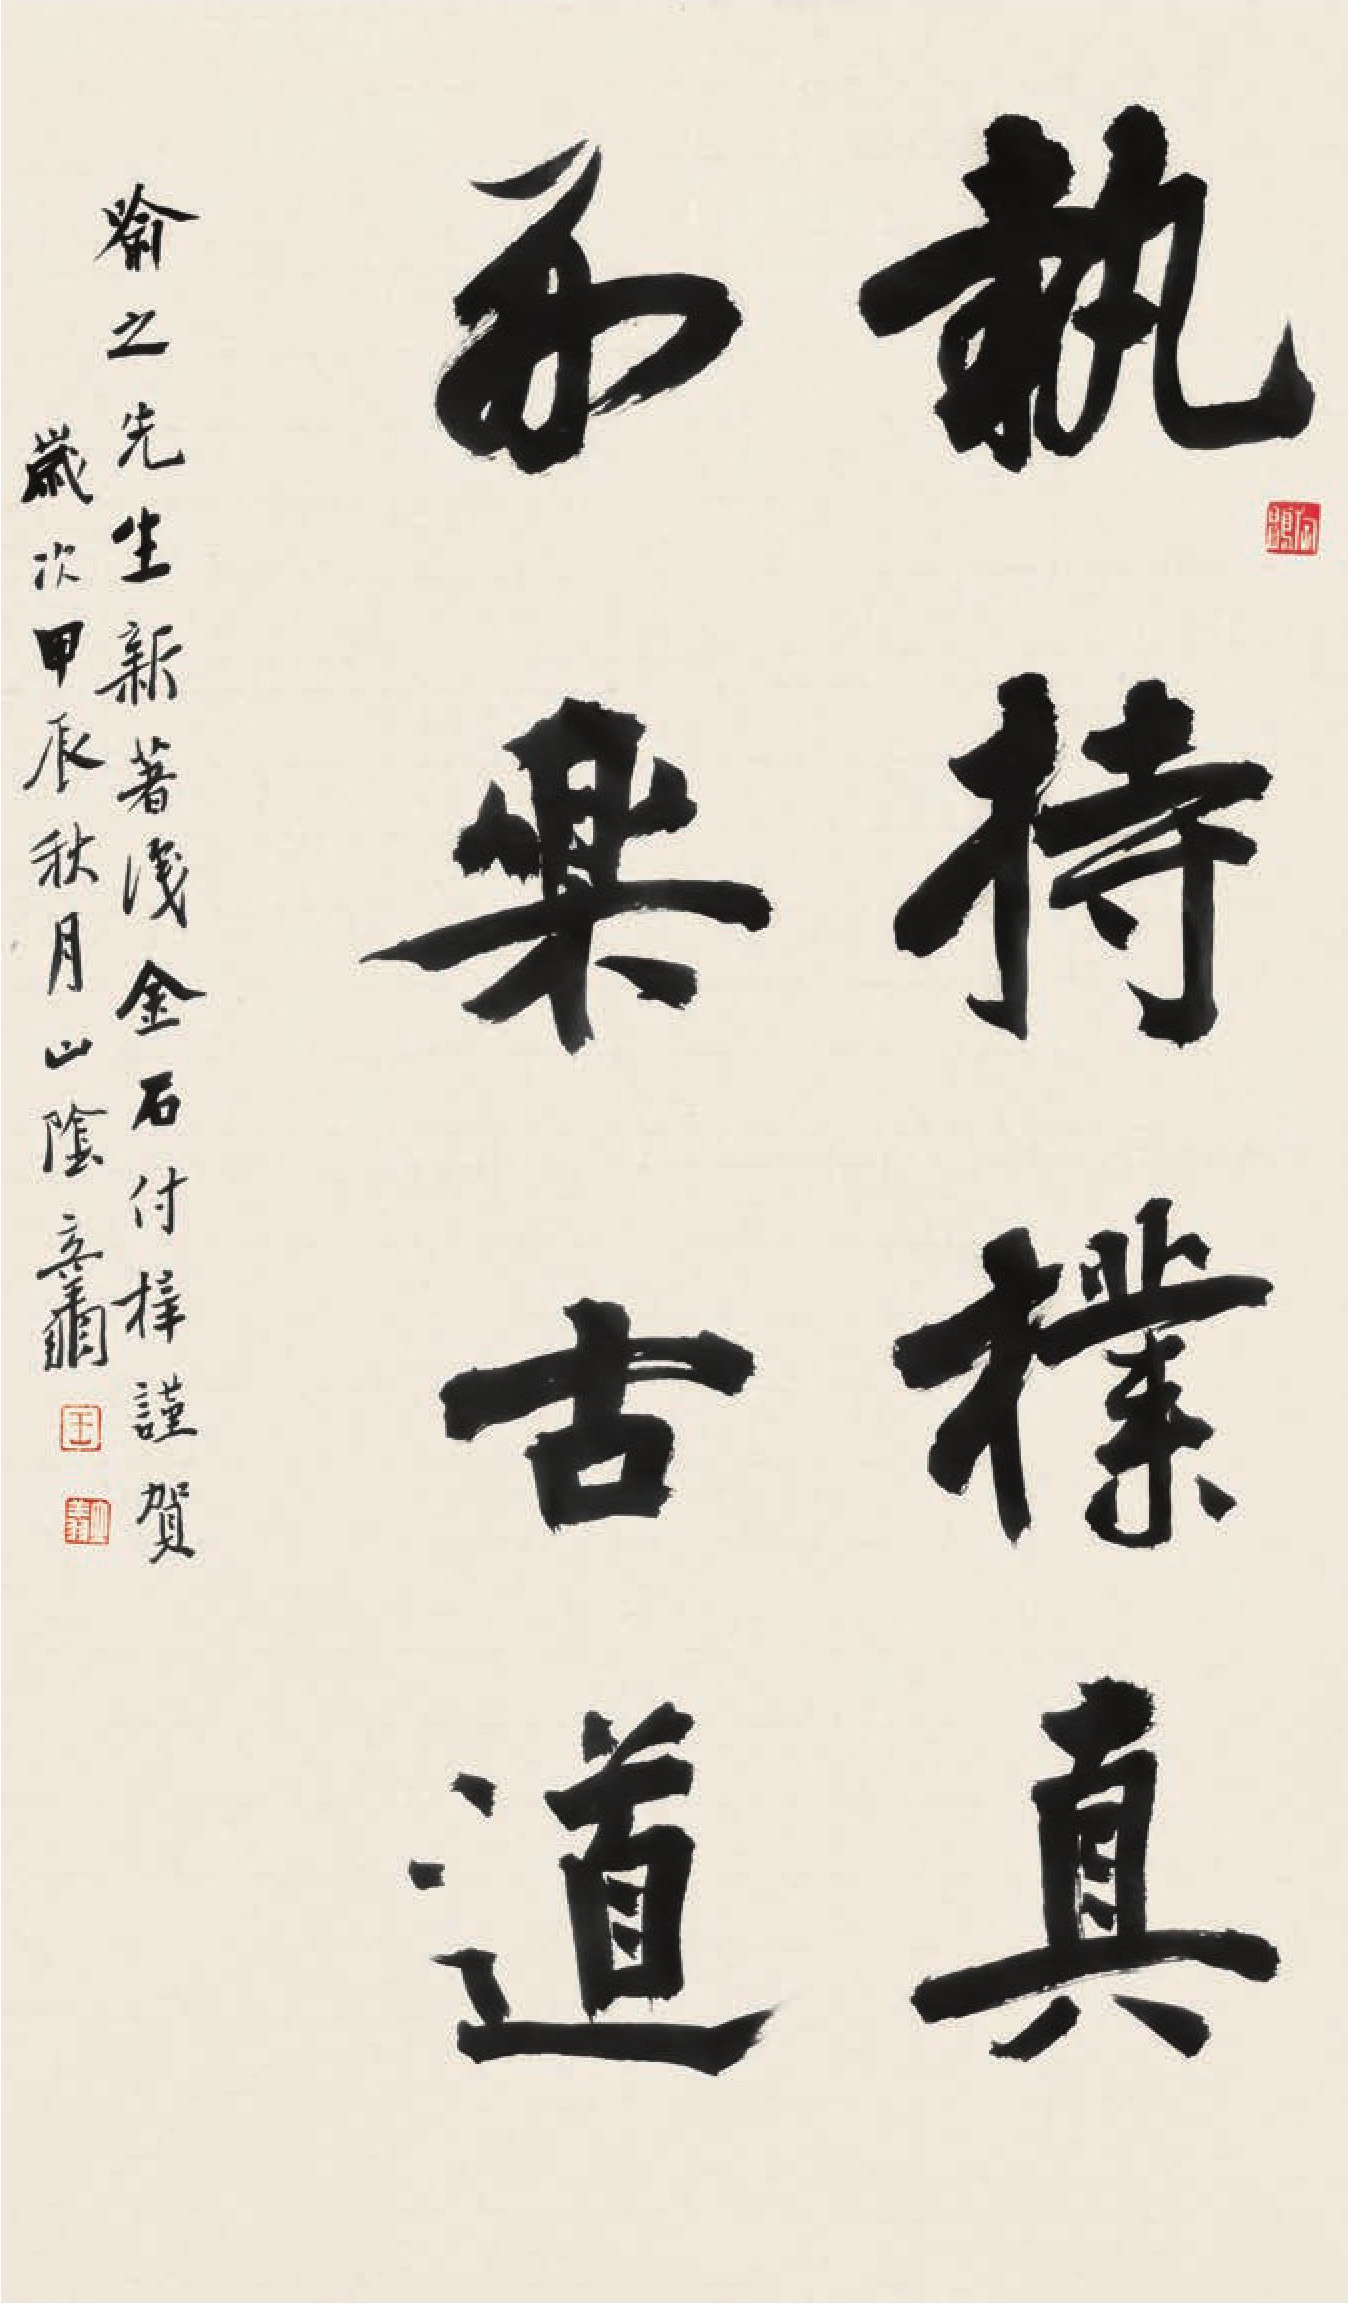 執持樸真
而楽古道
喻之先生新著金石付梓謹賀
歲次甲辰秋月山陰
王